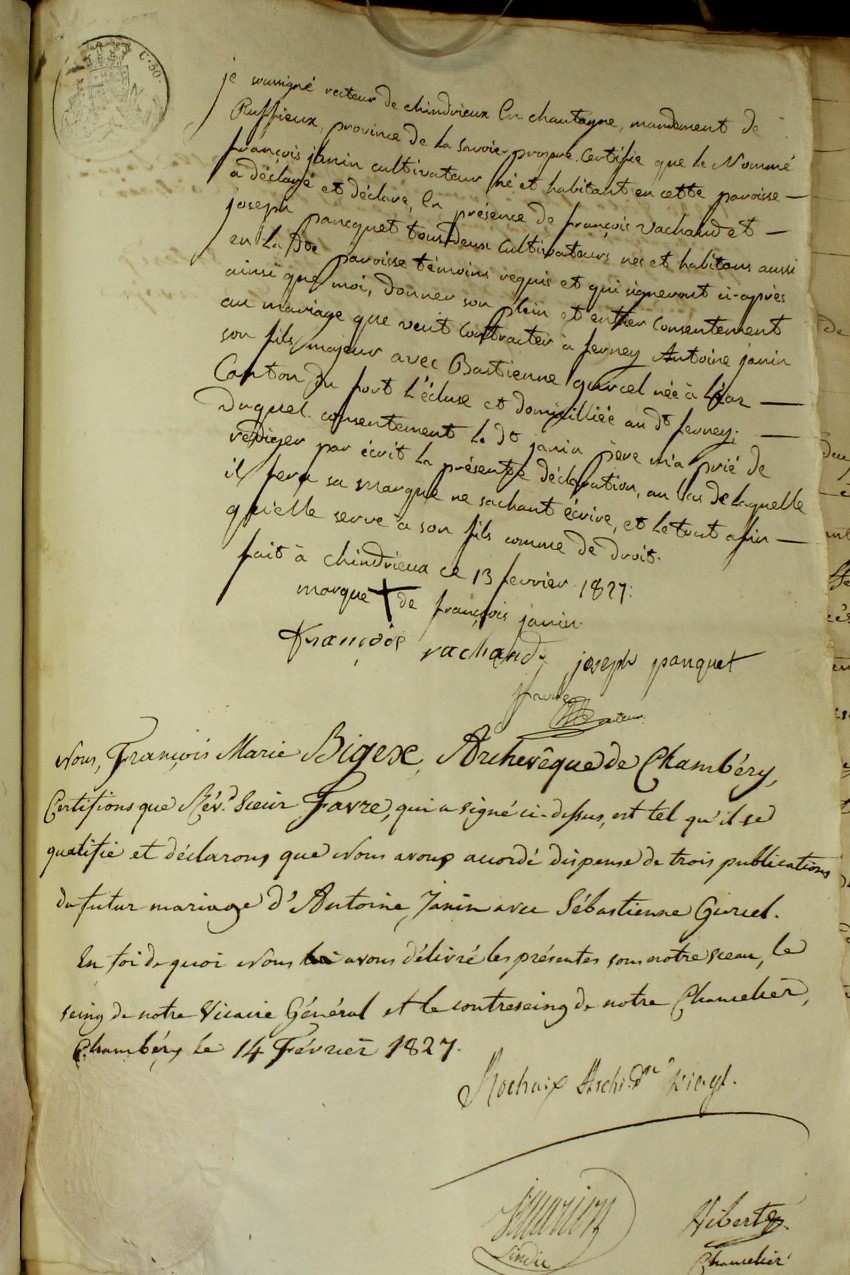 C. 50.
je soussigné recteur de chindrieux En chautagne, mandement de
Ruffieux, province de la Savoie-propre. Certifie que le Nommé
françois janin cultivateur né et habitant en cette paroisse —
a déclaré et déclare, En présence de françois vachaud et —
joseph pancquet tous deux cultivateurs nés et habitans aussi
en la dte paroisse témoins requis et qui signeront ci-après
ainsi que moi, donner son plein et entier consentement
au mariage que veut contracter à ferney Antoine janin
son fils majeur avec Bastienne gurcel née à —
Canton du fort l'écluse et domicilliée au dt ferney; —
Duquel consentement le dt janin père m'a prié de
rediger par écrit la présente déclaration, au bas de laquelle
il fera sa marque ne sachant écrire, et le tout afin —
qu'elle serve à son fils comme de droit.
fait à chindrieux ce 13 fevrier 1827.
marque + de françois janin
françois vachaud joseph panquet
favre
Recteur
Nous, François Marie Bigex, Archevêque de Chambéry,
Certifions que Rév.d Sieur Favre, qui a signé ci-dessus, est tel qu'il se
qualifie et déclarons que Nous avons accordé dispense de trois publications
du futur mariage d'Antoine Janin avec Sébastienne Gurcel.
En foi de quoi Nous avons délivré les présentes sous notre sceau, le
seing de notre Vicaire Général et le contreseing de notre Chancelier,
Chambéry le 14 Février 1827.
Rochaix Archid.re vic. gl.
Sindic
Hibert
Chancelier